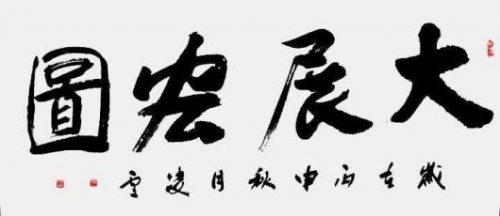 大展宏圖
歲在丙申秋月凌雲